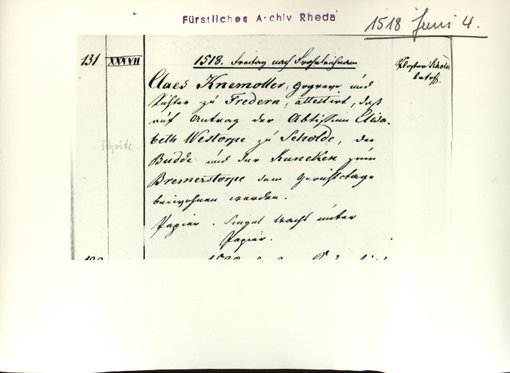 Fürstliches Archiv Rheda
1518 Juni 4.
131 XXXVII 1518. Freitag nach Frohnleichnam Kloster
betreff.
Claes Knemoller, gogreve und
Richter zu Fredern, attestirt, daß
auf Antrag der Abtissin Elisa-
beth Westorpe zu Scholde, der
Budde und der Kuneken zum
Bremerstorpe dem Gerichtstage
beiwohnen werden.
Scholde
Papier. Siegel Wachs unter
Papier.